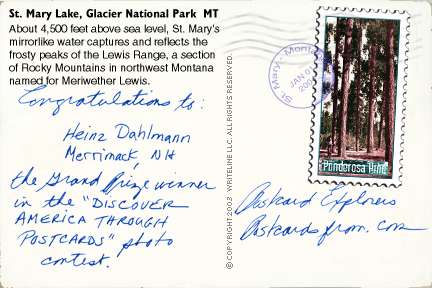 St. Mary Lake, Glacier National Park MT
About 4,500 feet above sea level, St. Mary's
mirrorlike water captures and reflects the
frosty peaks of the Lewis Range, a section
of Rocky Mountains in northwest Montana
named for Meriwether Lewis.
Congratulations to:
Heinz Dahlmann
Merrimack, NH
the Grand Prize winner
in the "DISCOVER
AMERICA THROUGH
POSTCARDS" photo
contest.
© COPYRIGHT 2003 WRITELINE LLC. ALL RIGHTS RESERVED.
St. Mary - Montana
JAN 0
Ponderosa Pine
Postcard Explorers
Postcards from. com